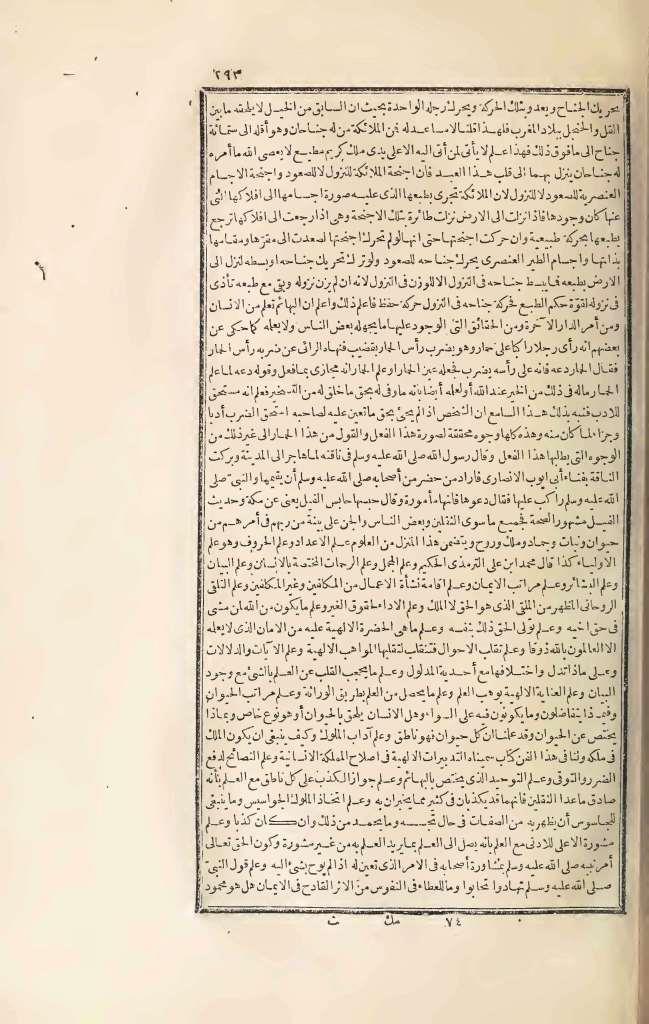 ٢٩٣
بتحريك الجناح وبعد وبتلك الحركة ويحرك رجله الواحدة بحيث ان السابق من الخيل لا يلحقه ما بين
القتل بلاد المغرب فلهذا قلنا لا مساعد له فمن الملائكة من له جناحان وهو أقله الى ستمائة
جناح الى ما فوق ذلك فهذا علم لا يأتى لمن أتى اليه الا على يدى ملك كريم مطيع لا يعصى الله ما أمره
له جناحان ينزل بهما الى قلب هذا العبد فان اجنحة الملائكة للنزول لا للصعود واجنحة الاجسام
العنصرية للصعود لا للنزول لان الملائكة تجرى بطبعها الذى عليه صورة اجسامها الى افلاكها التى
عنها كان وجودها فاذا نزلت الى الارض نزلت طائرة بتلك الاجنحة وهى اذا رجعت الى افلاكها ترجع
بطبعها بحركة طبيعية وان حركت اجنحتها حتى انها لو لم تحرك اجنحتها لصعدت الى مقرها ومقامها
بذاتها واجسام الطير العنصرى يحرك جناحه للصعود ولو ترك تحريك جناحه او بسطه لنزل الى
الارض بطبعه فما يبسط جناحه فى النزول الا للوزن فى النزول لانه ان لم يزن نزوله وبقى مع طبعه تأذى
فى نزوله لقوة حكم الطبع فحركة جناحه فى النزول حركة حفظ فاعلم ذلك واعلم ان البهائم تعلم من الانسان
ومن أمر الدار الآخرة ومن الحقائق التى الوجود عليها ما يجهله بعض الناس ولا يعلمه كما حكى عن
بعضهم انه رأى رجلا راكبا على حمار وهو يضرب رأس الحمار بقضيب فنهاه الرائى عن ضربه رأس الحمار
فقال الحمار دعه فانه على رأسه يضرب فجعله عين الحمار او علم الحمار انه مجازى بما فعل وقوله دعه لما علم
الحمار ماله فى ذلك من الخير عند الله أو لعلمه أيضا بانه ما وفى له بحق ما خلق له من التسخير فعلم انه مستحق
للادب فنبه بذلك هذا السامع ان الشخص اذا لم يجئ بحق ما تعين عليه لصاحبه استحق الضرب أدبا
وجزاء لما كان منه وهذه كلها وجوه محققة لصورة هذا الفعل والقول من هذا الحمار الى غير ذلك من
الوجوه التى يطلبها هذا الفعل وقال رسول الله صلى الله عليه وسلم فى ناقته لما هاجر الى المدينة وبركت
الناقة بفناء أبى أيوب الانصارى فاراد من حضر من أصحابه صلى الله عليه وسلم أن يقيمها والنبى صلى
الله عليه وسلم راكب عليها فقال دعوها فانها مأمورة وقال حبسها حابس الفيل يعنى عن مكة وحديث
الفيل مشهور الصحة فجميع ما سوى الثقلين وبعض الناس والجن على بينة من ربهم فى أمرهم من
حيوان ونبات وجماد وملك وروح ويتضمن هذا المنزل من العلوم علم الاعداد وعلم الحروف وهو علم
الاولياء كذا قال محمد ابن على الترمذى الحكيم وعلم المجمل وعلم الرحمات المختصة بالانسان وعلم البيان
وعلم البشائر وعلم مراتب الايمان وعلم اقامة نشأة الاعمال من المكلفين وغير المكلفين وعلم التلقى
الروحانى المظهر من الملقى الذى هو الحق لا الملك وعلم الاداء لحقوق الغير وعلم ما يكون من الله لمن مشى
فى حق اخيه وعلم تولى الحق ذلك بنفسه وعلم ما هى الحضرة الالهية عليه من الامان الذى لا يعلمه
الا العالمون بالله ذوقا وعلم تقلب الاحوال فتنقلب لتقلبها المواهب الالهية وعلم الآيات والدلالات
وعلى ماذا تدل واختلافها مع أحدية المدلول وعلم ما يحجب القلب عن العلم بالشئ مع وجود
البيان وعلم العناية الالهية بوهب العلم وعلم ما يحصل من العلم بطريق الوراثة وعلم مراتب الحيوان
وفيما ذا يتفاضلون وما يكونون فيه على السواء وهل الانسان يلحق بالحيوان أو هو نوع خاص وبماذا
يختص عن الحيوان وقد علمنا ان كل حيوان فهو ناطق وعلم آداب الملوك وكيف ينبغى ان يكون الملك
فى ملكه ولنا فى هذا الفن كتاب سميناه التدبيرات الالهية فى اصلاح المملكة الانسانية وعلم النصائح لدفع
الضرر والتوقى وعلم التوحيد الذى يختص بالبهائم وعلم جواز الكذب على كل ناطق مع العلم بأنه
صادق ما عدا الثقلين فانهما قد يكذبان فى كثير مما يخبران به وعلم اتخاذ الملوك الجواسيس وما ينبغى
للجاسوس أن يظهر به من الصفات فى حال تجسسه وما يحمد من ذلك وان كان كذبا وعلم
مشورة الاعلى للادنى مع العلم بانه يصل الى العلم بما يريد العلم به من غير مشورة وكون الحق تعالى
أمر نبيه صلى الله عليه وسلم بمشاورة أصحابه فى الامر الذى تعين له اذا لم يوح بشئ اليه وعلم قول النبى
صلى الله عليه وسلم تهادوا تحابوا وما للعطاء فى النفوس من الاثر القادح فى الايمان هل هو محمود
٧٤ مك ث